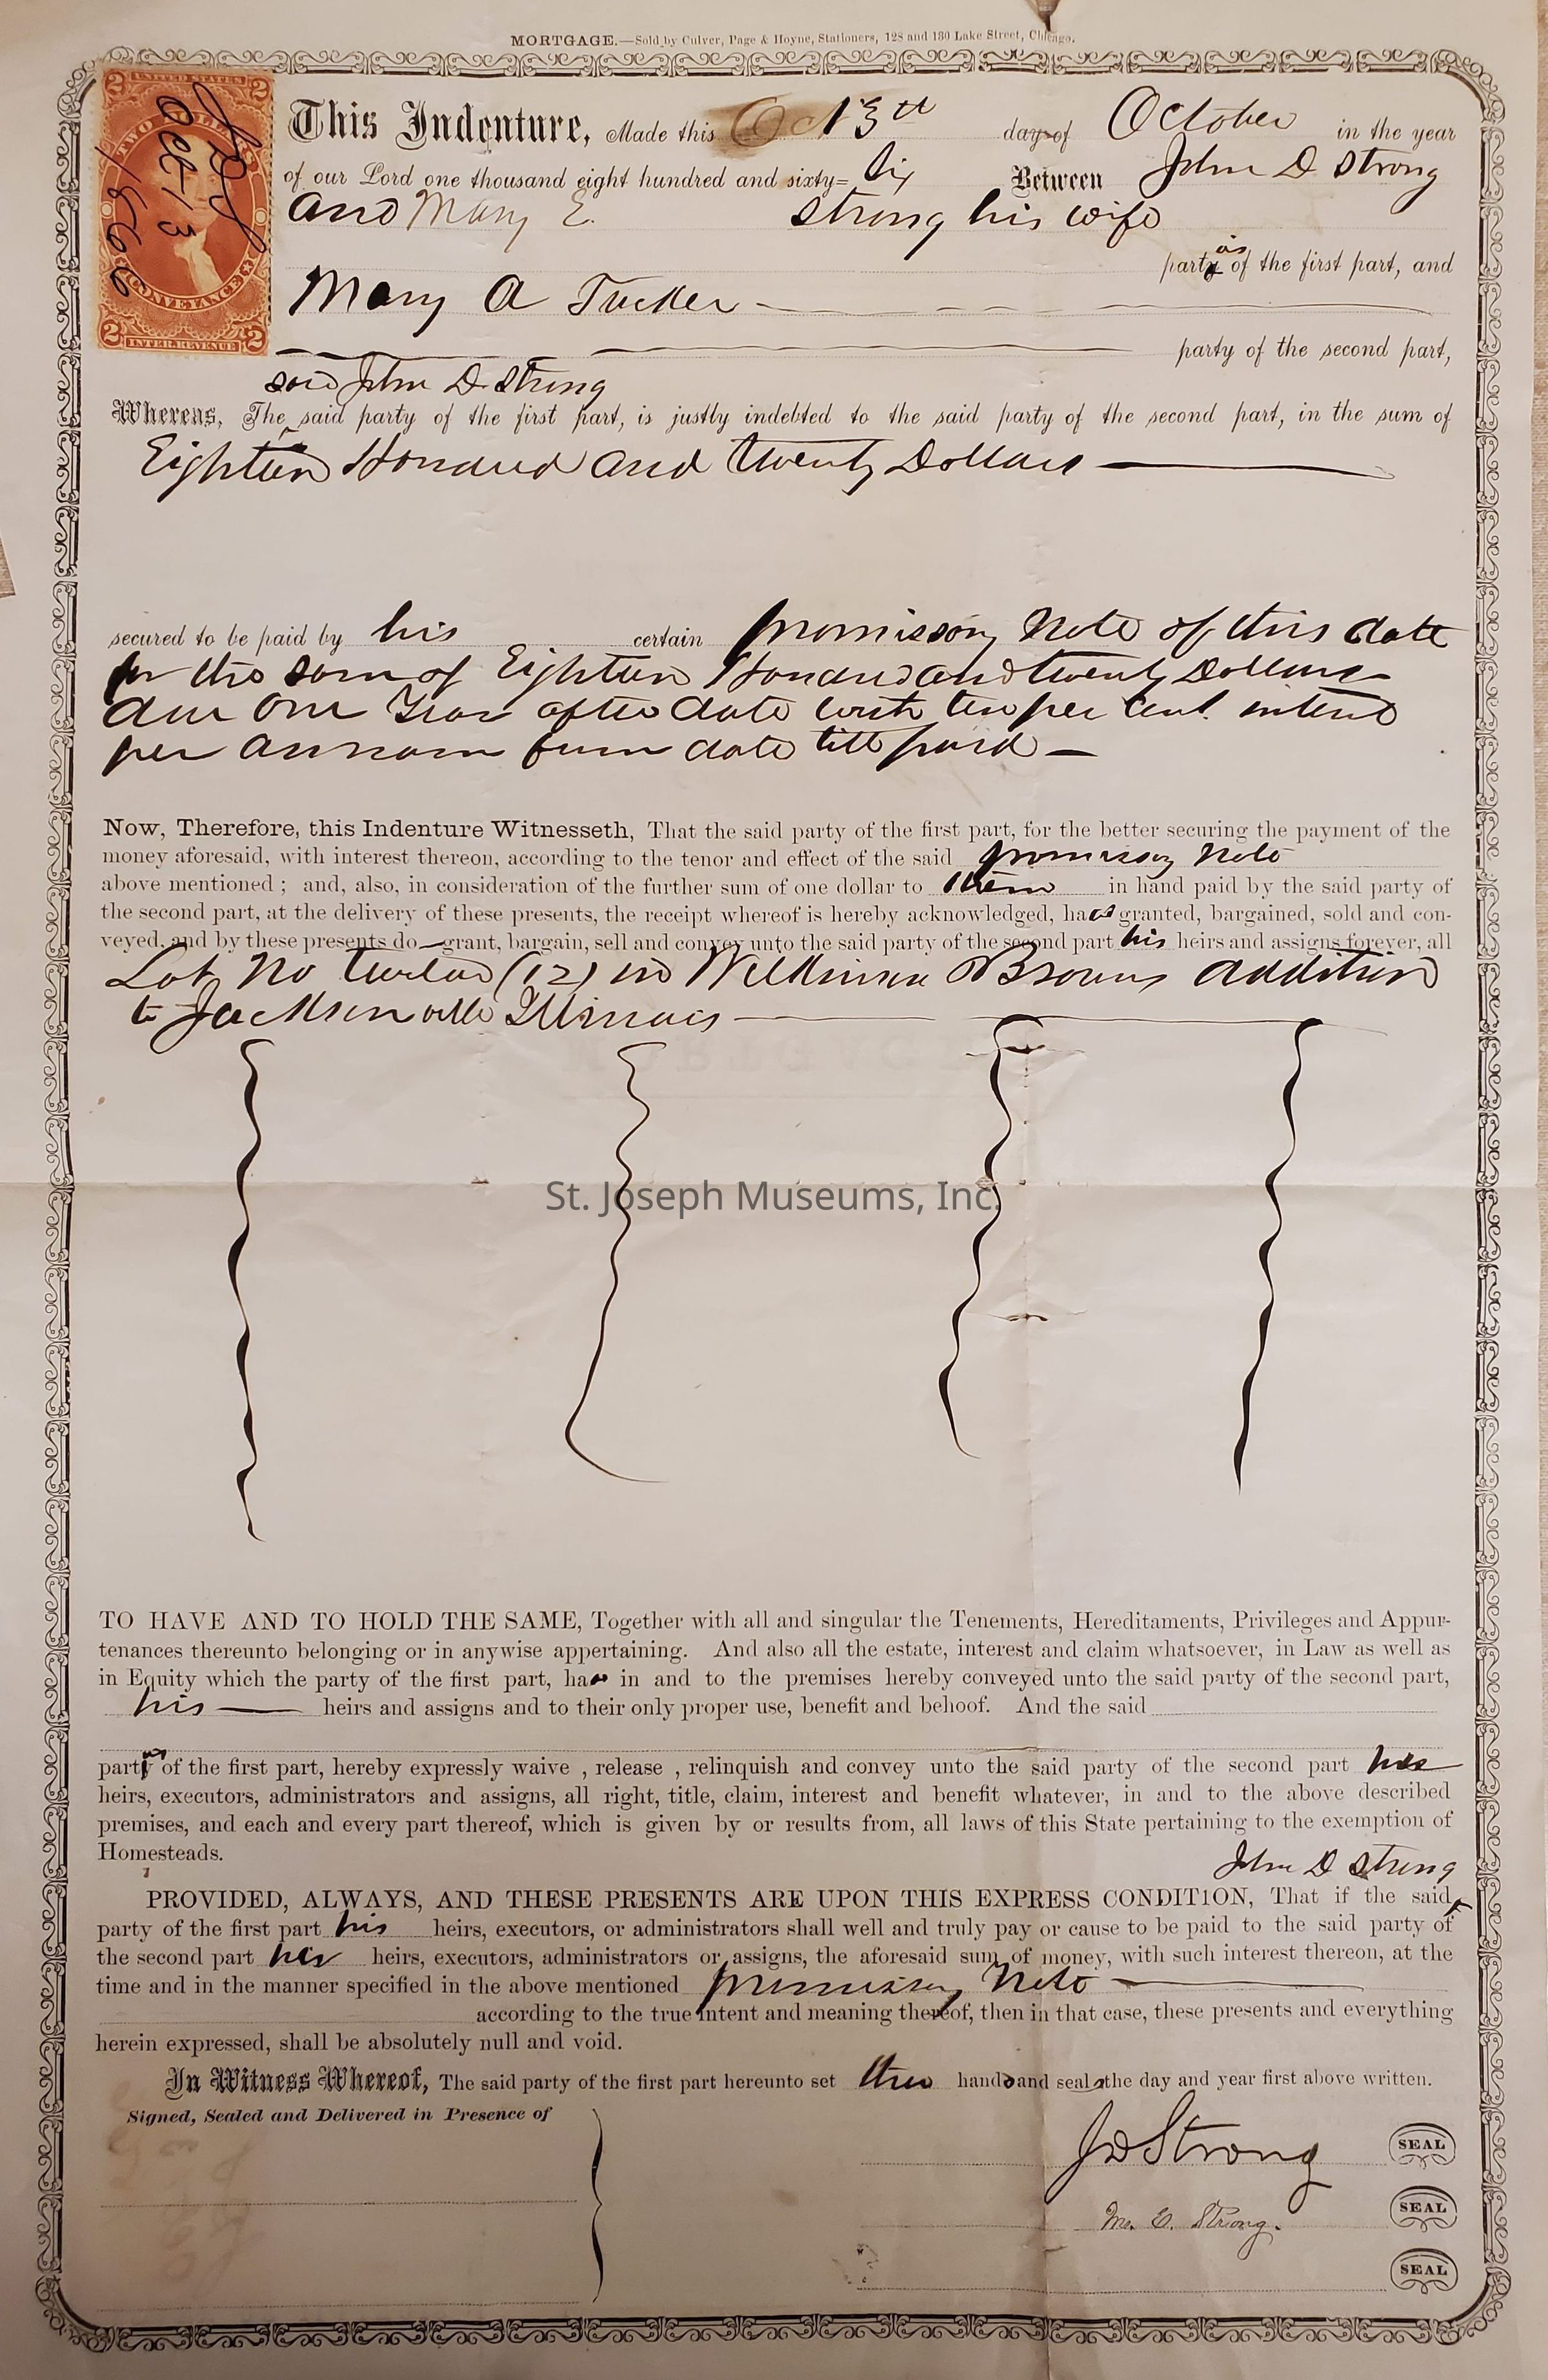 MORTGAGE.—Sold by Culver, Page & Hoyne, Stationers, 128 and 130 Lake Street, Chicago.
2 UNITED STATES 2
TWO DOLLARS
CONVEYANCE
2 INTER. REVENUE 2
JDS
Oct 13
1866
This Indenture, Made this 13th day of October in the year
of our Lord one thousand eight hundred and sixty=six Between John D Strong
and Mary E. Strong his wife
parties of the first part, and
Mary A Tucker
party of the second part,
said John D Strong
Whereas, The said party of the first part, is justly indebted to the said party of the second part, in the sum of
Eighteen Hundred and twenty Dollars
secured to be paid by his certain promissory Note of this date
for the sum of Eighteen Hundred and twenty Dollars
due One Year after date with ten per cent interest
per annum from date till paid
Now, Therefore, this Indenture Witnesseth, That the said party of the first part, for the better securing the payment of the
money aforesaid, with interest thereon, according to the tenor and effect of the said promissory Note
above mentioned; and, also, in consideration of the further sum of one dollar to them in hand paid by the said party of
the second part, at the delivery of these presents, the receipt whereof is hereby acknowledged, has granted, bargained, sold and con-
veyed, and by these presents do grant, bargain, sell and convey unto the said party of the second part his heirs and assigns forever, all
Lot No twelve (12) in Addition
to Jacksonville Illinois
St. Joseph Museums, Inc.
TO HAVE AND TO HOLD THE SAME, Together with all and singular the Tenements, Hereditaments, Privileges and Appur-
tenances thereunto belonging or in anywise appertaining. And also all the estate, interest and claim whatsoever, in Law as well as
in Equity which the party of the first part, has in and to the premises hereby conveyed unto the said party of the second part,
his heirs and assigns and to their only proper use, benefit and behoof. And the said
parties of the first part, hereby expressly waive , release , relinquish and convey unto the said party of the second part her
heirs, executors, administrators and assigns, all right, title, claim, interest and benefit whatever, in and to the above described
premises, and each and every part thereof, which is given by or results from, all laws of this State pertaining to the exemption of
Homesteads.
John D Strong
PROVIDED, ALWAYS, AND THESE PRESENTS ARE UPON THIS EXPRESS CONDITION, That if the said
party of the first part his heirs, executors, or administrators shall well and truly pay or cause to be paid to the said party of
the second part her heirs, executors, administrators or assigns, the aforesaid sum of money, with such interest thereon, at the
time and in the manner specified in the above mentioned promissory Note
according to the true intent and meaning thereof, then in that case, these presents and everything
herein expressed, shall be absolutely null and void.
In Witness Whereof, The said party of the first part hereunto set their hands and seals the day and year first above written.
Signed, Sealed and Delivered in Presence of
JD Strong SEAL
M. E. Strong. SEAL
SEAL